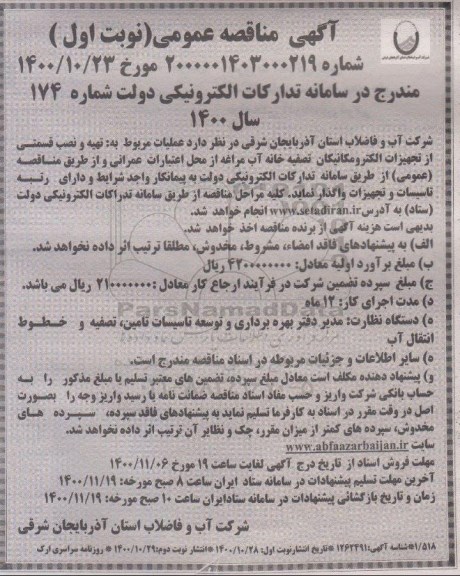 آگهی مناقصه عمومی(نوبت اول )
شماره ۲۰۰۰۰۰۱۴۰۳۰۰۰۲۱۹ مورخ ۱۴۰۰/۱۰/۲۳
مندرج در سامانه تدارکات الکترونیکی دولت شماره ۱۷۴
سال ۱۴۰۰
شرکت آب و فاضلاب استان آذربایجان شرقی در نظر دارد عملیات مربوط به: تهیه و نصب قسمتی
از تجهیزات الکترومکانیکال تصفیه خانه آب مراغه از محل اعتبارات عمرانی و از طریق مناقصه
(عمومی) از طریق سامانه تدارکات الکترونیکی دولت به پیمانکار واجد شرایط و دارای رتبه
تاسیسات و تجهیزات واگذار نماید. کلیه مراحل مناقصه از طریق سامانه تدارکات الکترونیکی دولت
(ستاد) به آدرس www.setadiran.ir انجام خواهد شد.
بدیهی است هزینه آگهی از برنده مناقصه اخذ خواهد شد.
الف) به پیشنهادهای فاقد امضاء، مشروط، مخدوش، مطلقا ترتیب اثر داده نخواهد شد.
ب) مبلغ برآورد اولیه معادل: ۴۲۰۰۰۰۰۰۰۰ ریال
ج) مبلغ سپرده تضمین شرکت در فرآیند ارجاع کار معادل :۲۱۰۰۰۰۰۰۰ ریال می باشد.
د) مدت اجرای کار: ۱۲ ماه
ه) دستگاه نظارت: مدیر دفتر بهره برداری و توسعه تاسیسات تامین، تصفیه و خطوط
انتقال آب
ه) سایر اطلاعات و جزئیات مربوطه در اسناد مناقصه مندرج است.
و) پیشنهاد دهنده مکلف است معادل مبلغ سپرده، تضمین های معتبر تسلیم یا مبلغ مذکور را به
حساب بانکی شرکت واریز و حسب مفاد اسناد مناقصه ضمانت نامه یا رسید واریز وجه را بصورت
اصل در وقت مقرر در اسناد به کارفرما تسلیم نماید به پیشنهادهای فاقد سپرده، سپرده های
مخدوش، سپرده های کمتر از میزان مقرر، چک و نظایر آن ترتیب اثر داده نخواهد شد.
سایت www.abfaazarbaijan.ir
مهلت فروش اسناد از تاریخ درج آگهی لغایت ساعت ۱۹ مورخ ۱۴۰۰/۱۱/۰۶
آخرین مهلت تسلیم پیشنهادات در سامانه ستاد ایران ساعت ۸ صبح مورخه: ۱۴۰۰/۱۱/۱۹
زمان و تاریخ بازگشائی پیشنهادات در سامانه ستادایران ساعت ۱۰ صبح مورخه: ۱۴۰۰/۱۱/۱۹
شرکت آب و فاضلاب استان آذربایجان شرقی
۱/۵۱۸*شناسه آگهی: ۱۲۶۲۳۹۱*تاریخ انتشارنوبت اول: ۱۴۰۰/۱۰/۲۸ *انتشار نوبت دوم: ۱۴۰۰/۱۰/۲۹* روزنامه سراسری ارک
ParsNamadData